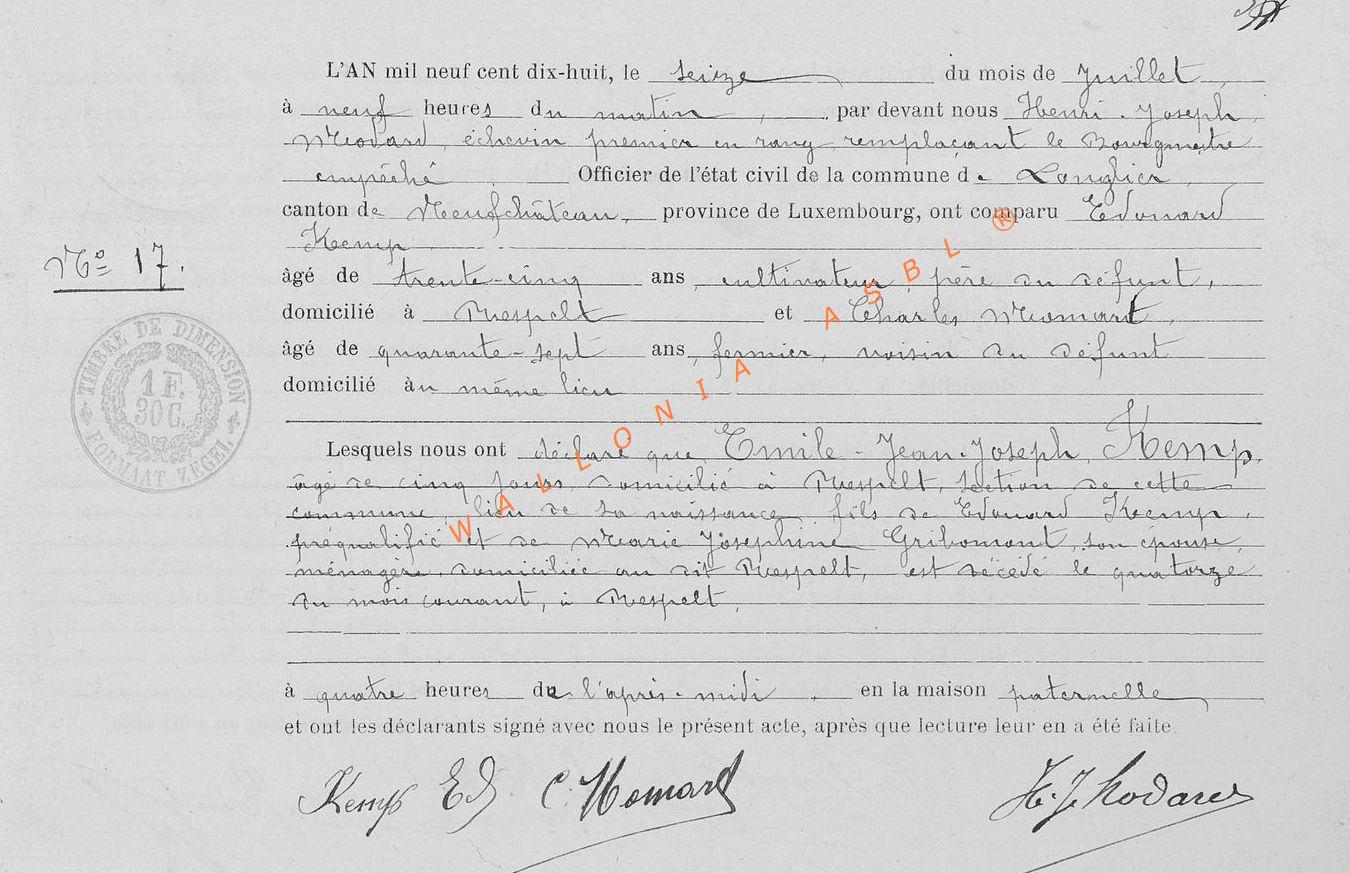 L'AN mil neuf cent dix-huit, le seize du mois de Juillet,
à neuf heures du matin, par devant nous Henri-Joseph
Modard, échevin premier en rang, remplaçant le Bourgmestre
empêché, Officier de l'état civil de la commune de Longlier,
canton de Neufchâteau, province de Luxembourg, ont comparu Edouard
Kemp
N° 17.
âgé de trente-cinq ans, cultivateur, père du défunt,
domicilié à Respelt et Charles Momart,
âgé de quarante-sept ans, fermier, voisin du défunt
domicilié au même lieu
TIMBRE DE DIMENSION
1 F.
30 C.
FORMAAT ZEGEL
Lesquels nous ont déclaré que Emile-Jean-Joseph Kemp,
âgé de cinq jours, domicilié à Respelt, section de cette
commune, lieu de sa naissance, fils de Edouard Kemp,
préqualifié et de Marie Joséphine Gribomont, son épouse,
ménagère, domiciliée au dit Respelt, est décédé le quatorze
du mois courant, à Respelt,
à quatre heures de l'après-midi, en la maison paternelle,
et ont les déclarants signé avec nous le présent acte, après que lecture leur en a été faite.
Kemp Ed. C. Momart H. J. Modard
WALLONIA ASBL ®